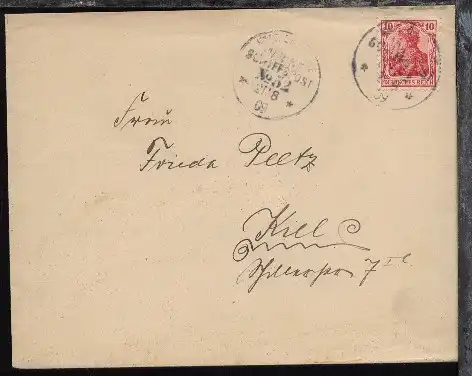 MARINE-
SCHIFFSPOST
No 52
21/8
09
10 10
DEUTSCHES REICH
Frau
Frieda Peetz
Kiel